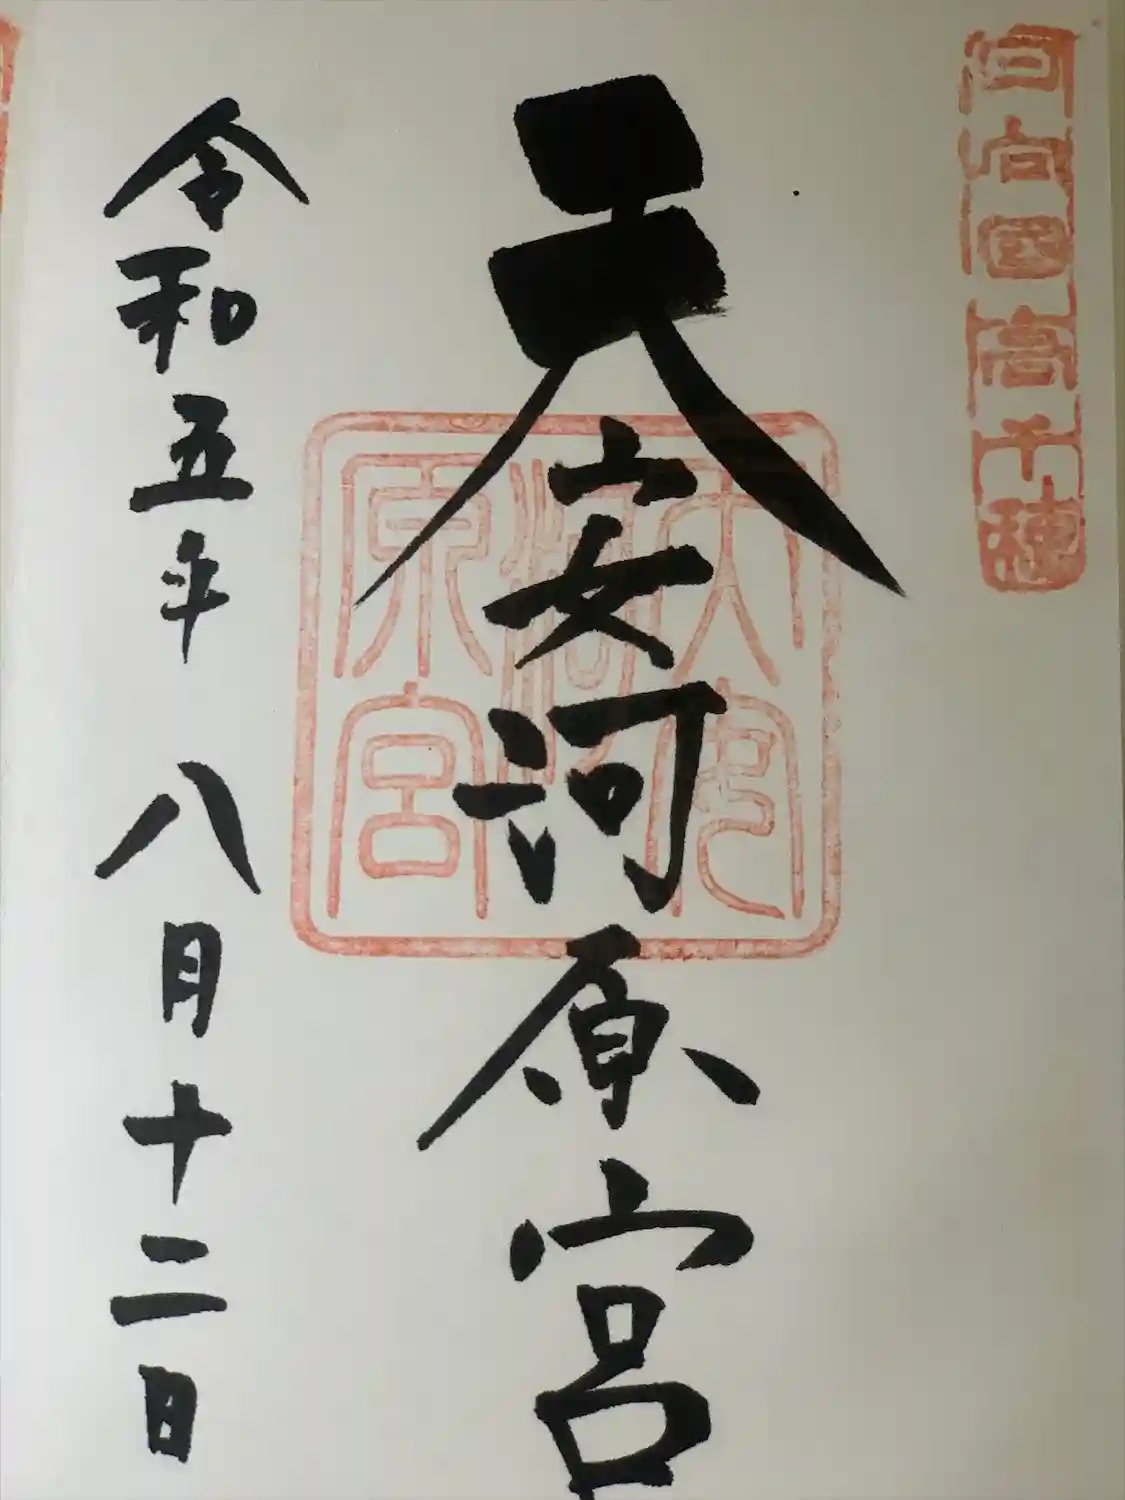 日向国高千穂
天安河原宮
天安河原宮
令和五年八月十二日